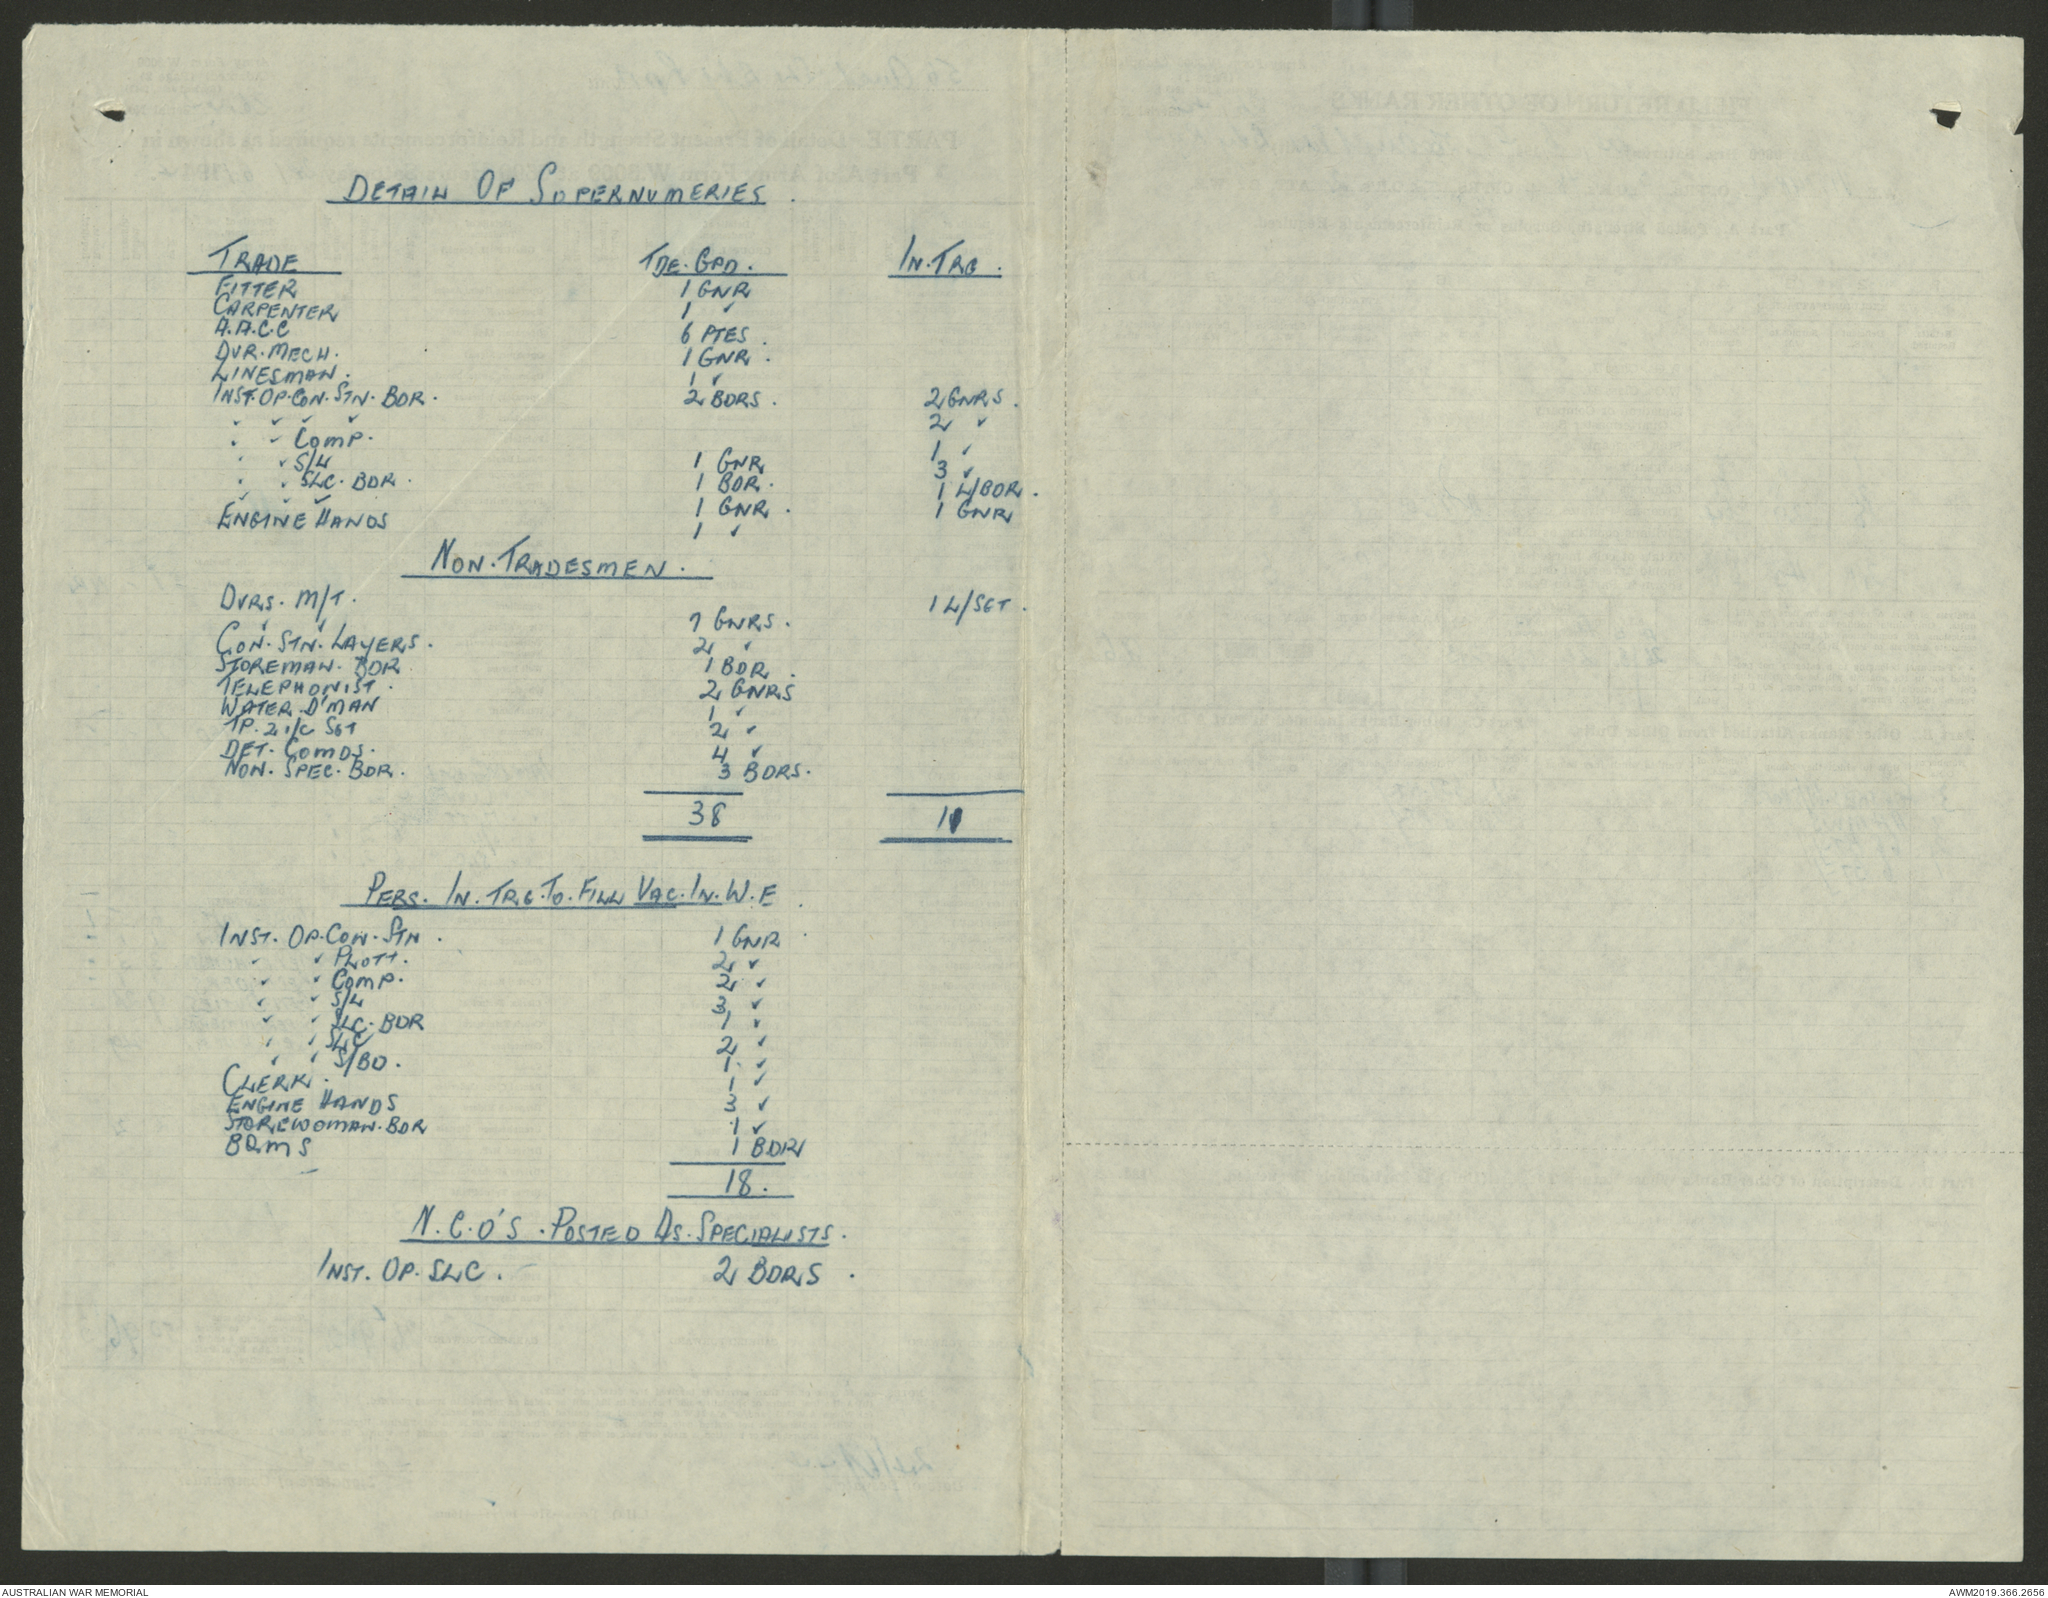 DETAIL OF SUPERNUMERIES.
TRADE TDE. GPD. IN. TRG.
FITTER 1 GNR
CARPENTER 1 "
A.A.C.C 6 PTES.
DVR. MECH. 1 GNR.
LINESMAN. 1 "
INST. OP. CON. STN. BDR. 2 BDRS. 2 GNRS.
" " " " 2 "
" " COMP. 1 "
" " S/L 1 GNR 3 "
" " SLC. BDR. 1 BDR. 1 L/BDR.
" " " 1 GNR. 1 GNR
ENGINE HANDS 1 "
NON. TRADESMEN.
DVRS. M/T. 1 L/SGT.
" " 7 GNRS.
CON. STN. LAYERS. 2 "
STOREMAN. BDR. 1 BDR.
TELEPHONIST. 2 GNRS
WATER D'MAN 1 "
TP. 2 i/c SGT 2 "
DET. COMDS. 4 "
NON. SPEC. BDR. 3 BDRS.
38 11
PERS. IN. TRG. TO. FILL VAC. IN. W.E.
INST. OP. CON. STN. 1 GNR
" " PLOTT. 2 "
" " COMP. 2 "
" " S/L 3 "
" " SLC. BDR 1 "
" " SLC 2 "
" " S/BD. 1 "
CLERK. 1 "
ENGINE HANDS 3 "
STOREWOMAN. BDR 1 "
BQMS 1 BDR
18.
N.C.O'S. POSTED AS. SPECIALISTS.
INST. OP. SLC. 2 BDRS.
AUSTRALIAN WAR MEMORIAL AWM2019.366.2656